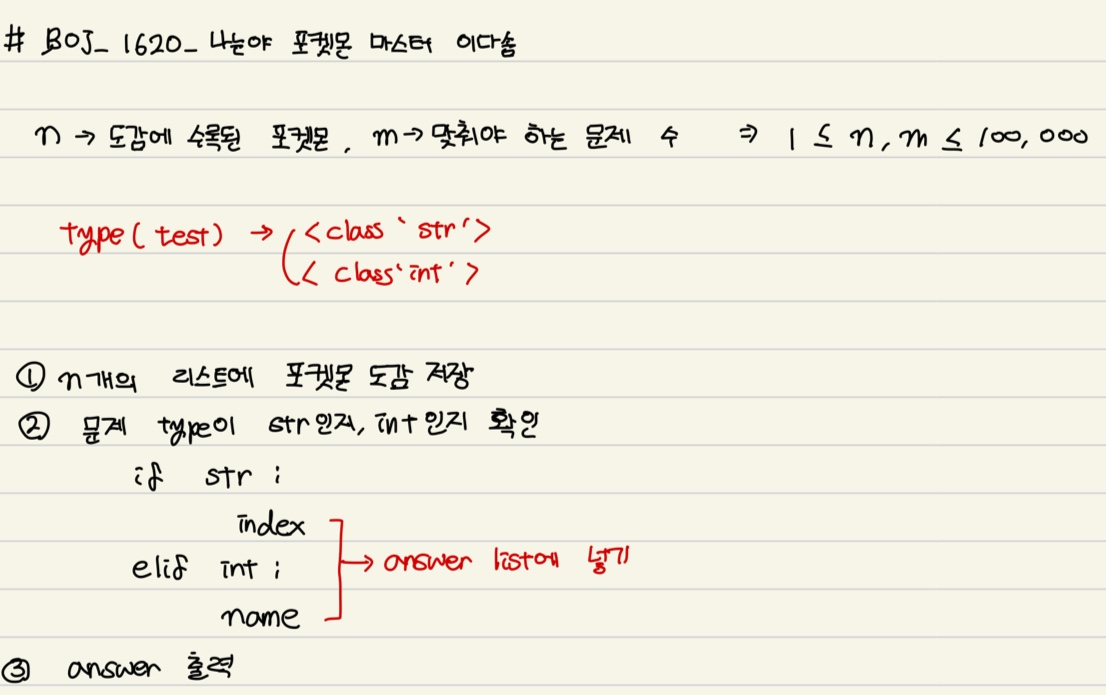 # BOJ_ 1620_ 나는야 포켓몬 마스터 이다솜
n → 도감에 수록된 포켓몬, m → 맞춰야 하는 문제 수 ⇒ 1 ≤ n, m ≤ 100,000
type( test) → <class 'str'>
< class 'int' >
① n개의 리스트에 포켓몬 도감 저장
② 문제 type이 str인지, int인지 확인
if str ;
index
elif int ; → answer list에 넣기
name
③ answer 출력